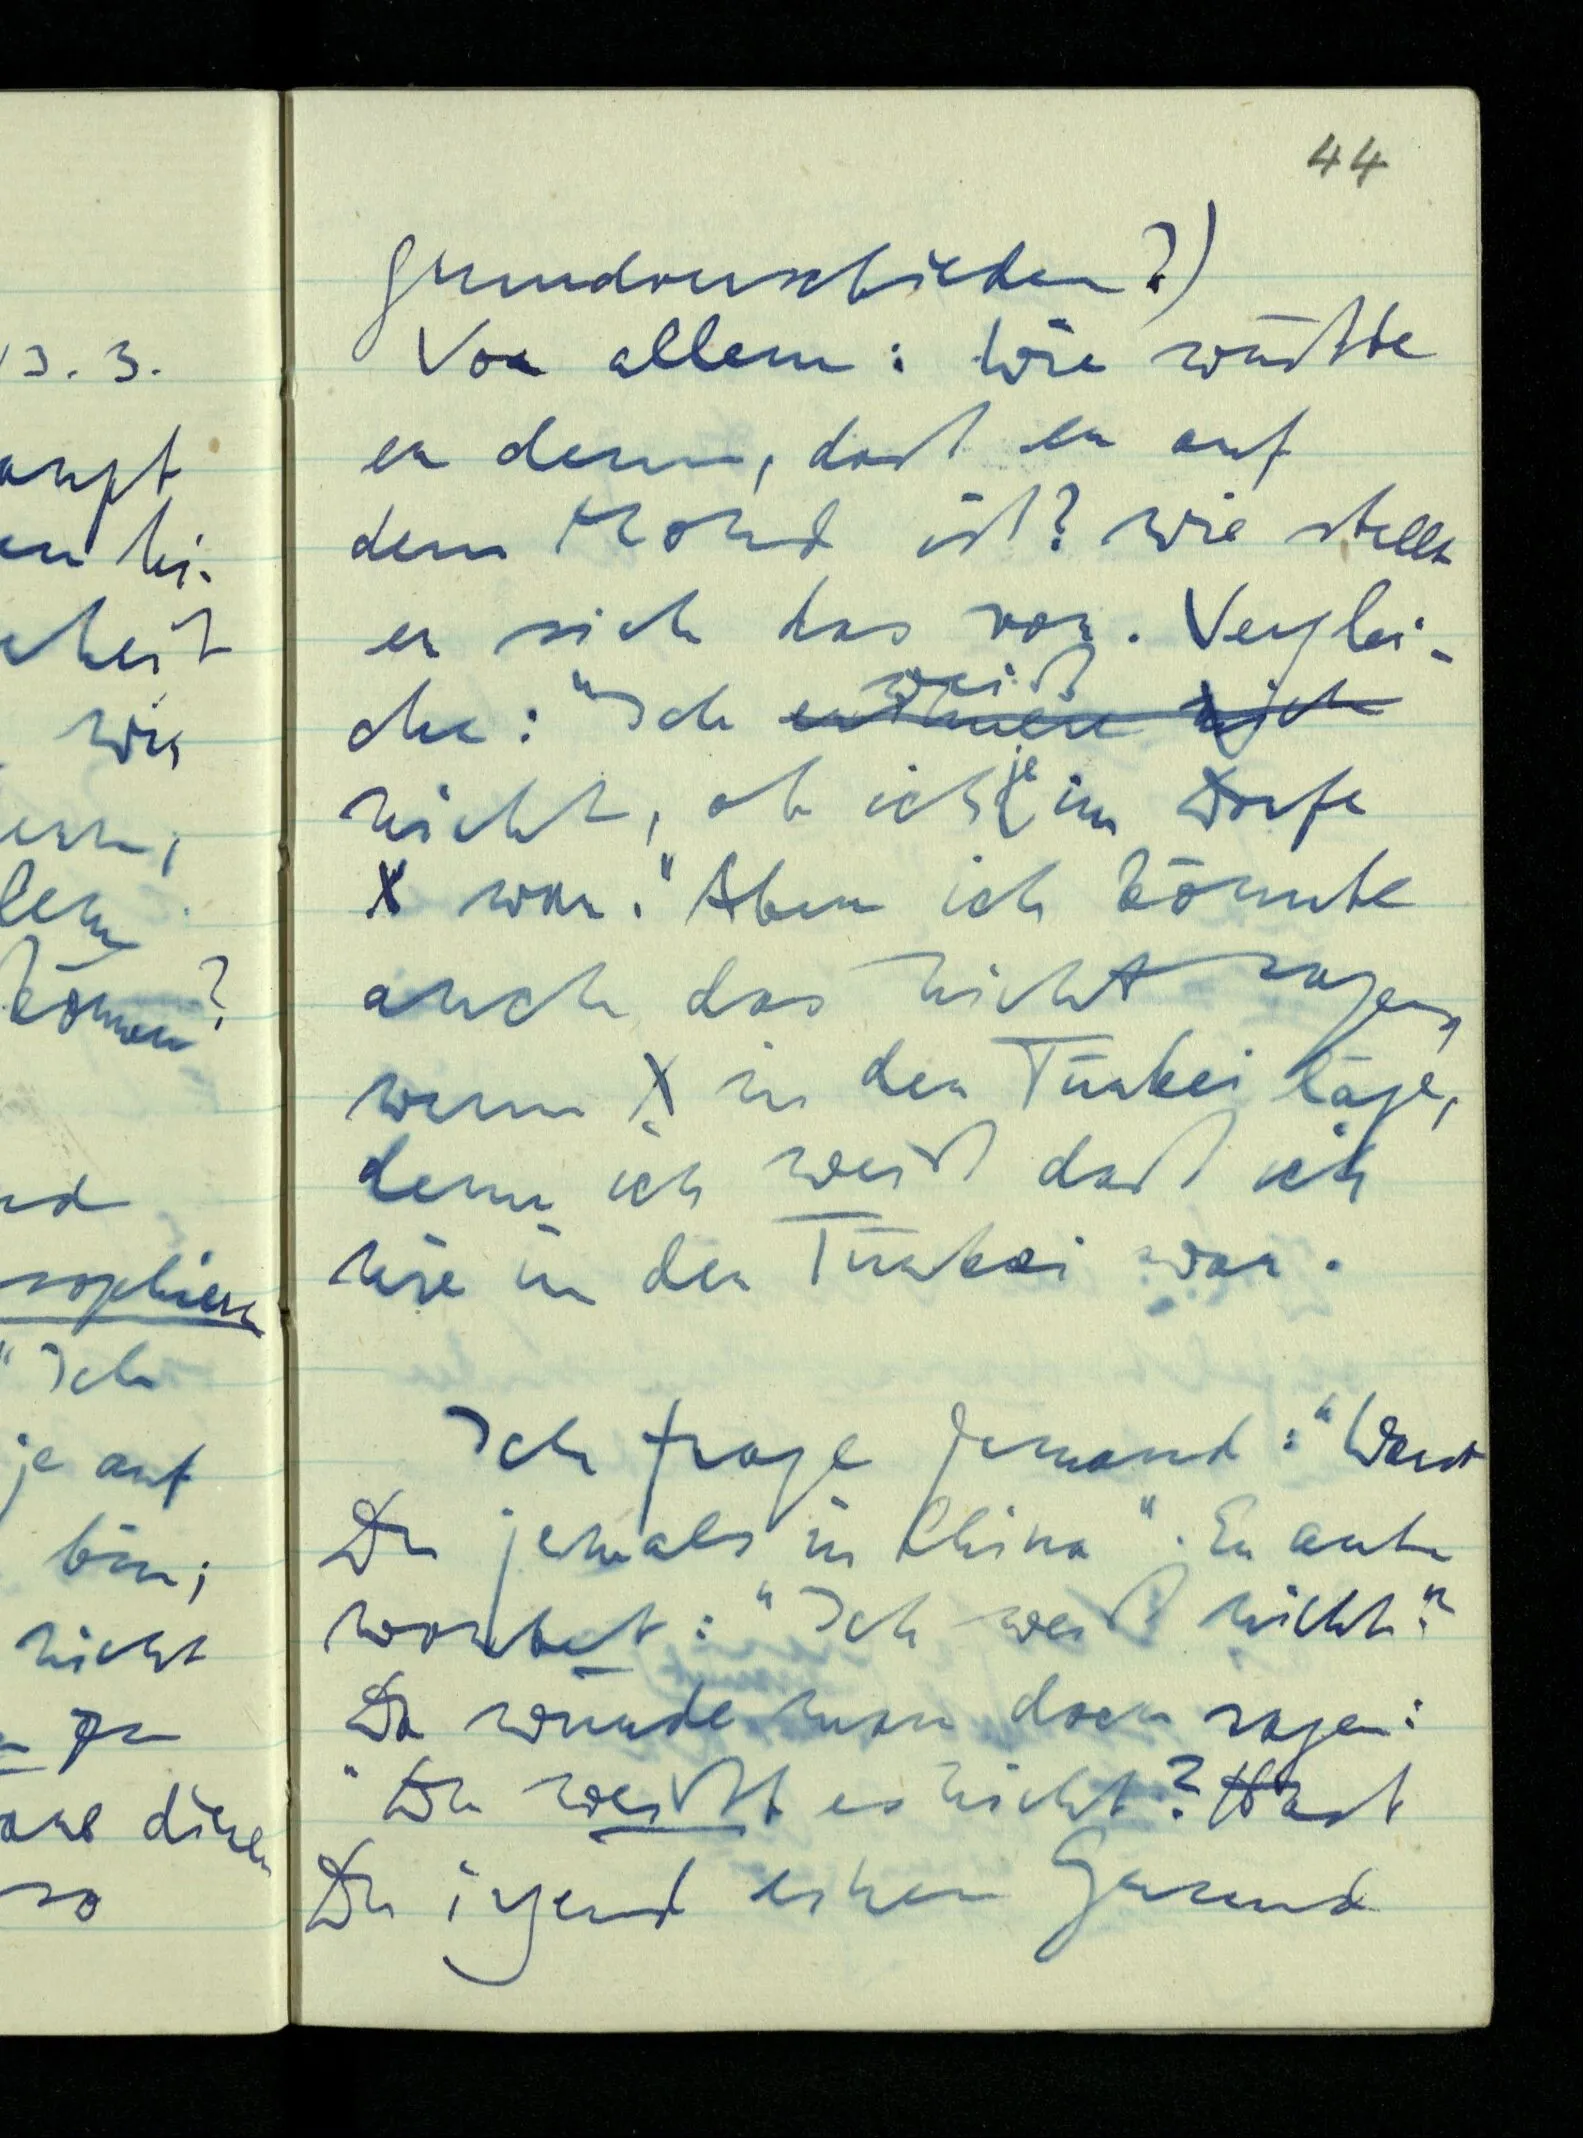 13.3.
aupt
en hi-
heit
wir
ern,
len
können?
nd
sophieren
"Ich
je auf
bin;
nicht
diesen
so
44
grundverschieden?)
Vor allem: Wie wüßte
er denn, daß er auf
dem Mond ist? Wie stellt
er sich das vor. Verglei-
che: "Ich erinnere mich weiß
nicht, ob ich je im Dorfe
X war." Aber ich könnte
auch das nicht sagen,
wenn X in der Türkei läge,
denn ich weiß daß ich
nie in der Türkei war.
Ich frage jemand: "Warst
Du jemals in China". Er ant-
wortet: "Ich weiß nicht".
Da würde man doch sagen:
"Du weißt es nicht? Hast
Du irgend einen Grund